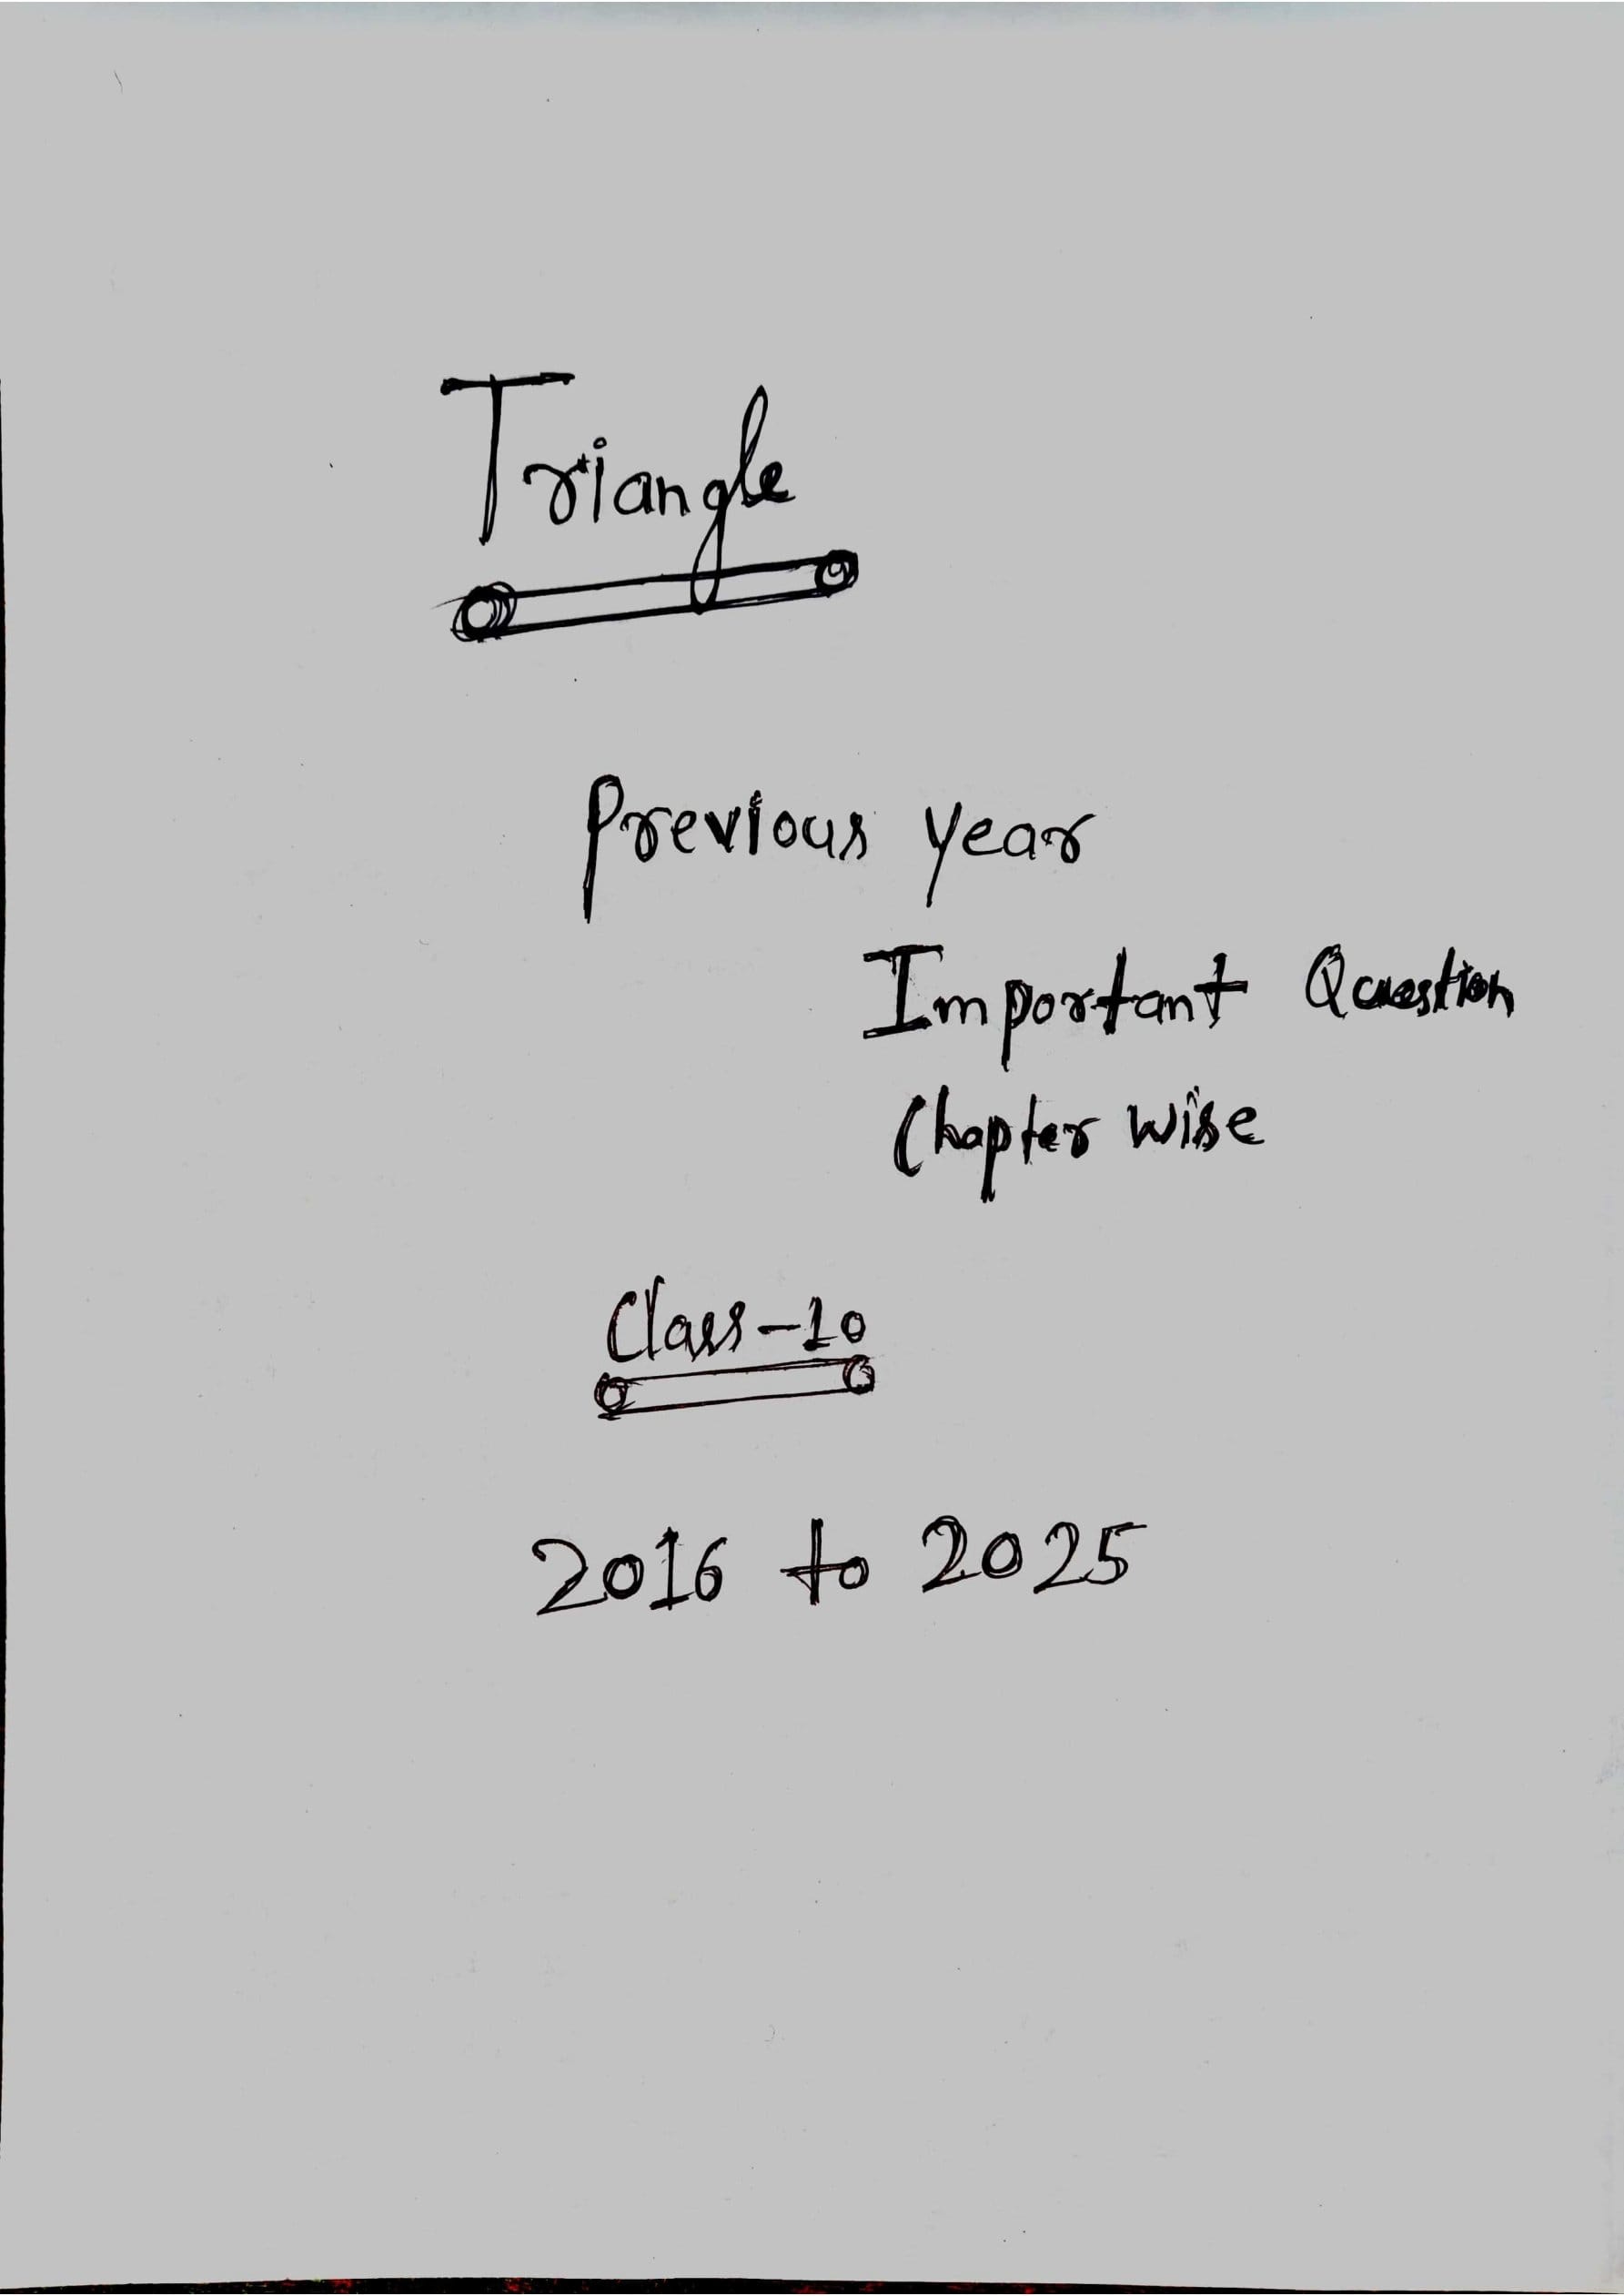 Triangle
Previous year
Important Question
Chapter wise
Class-10
2016 to 2025